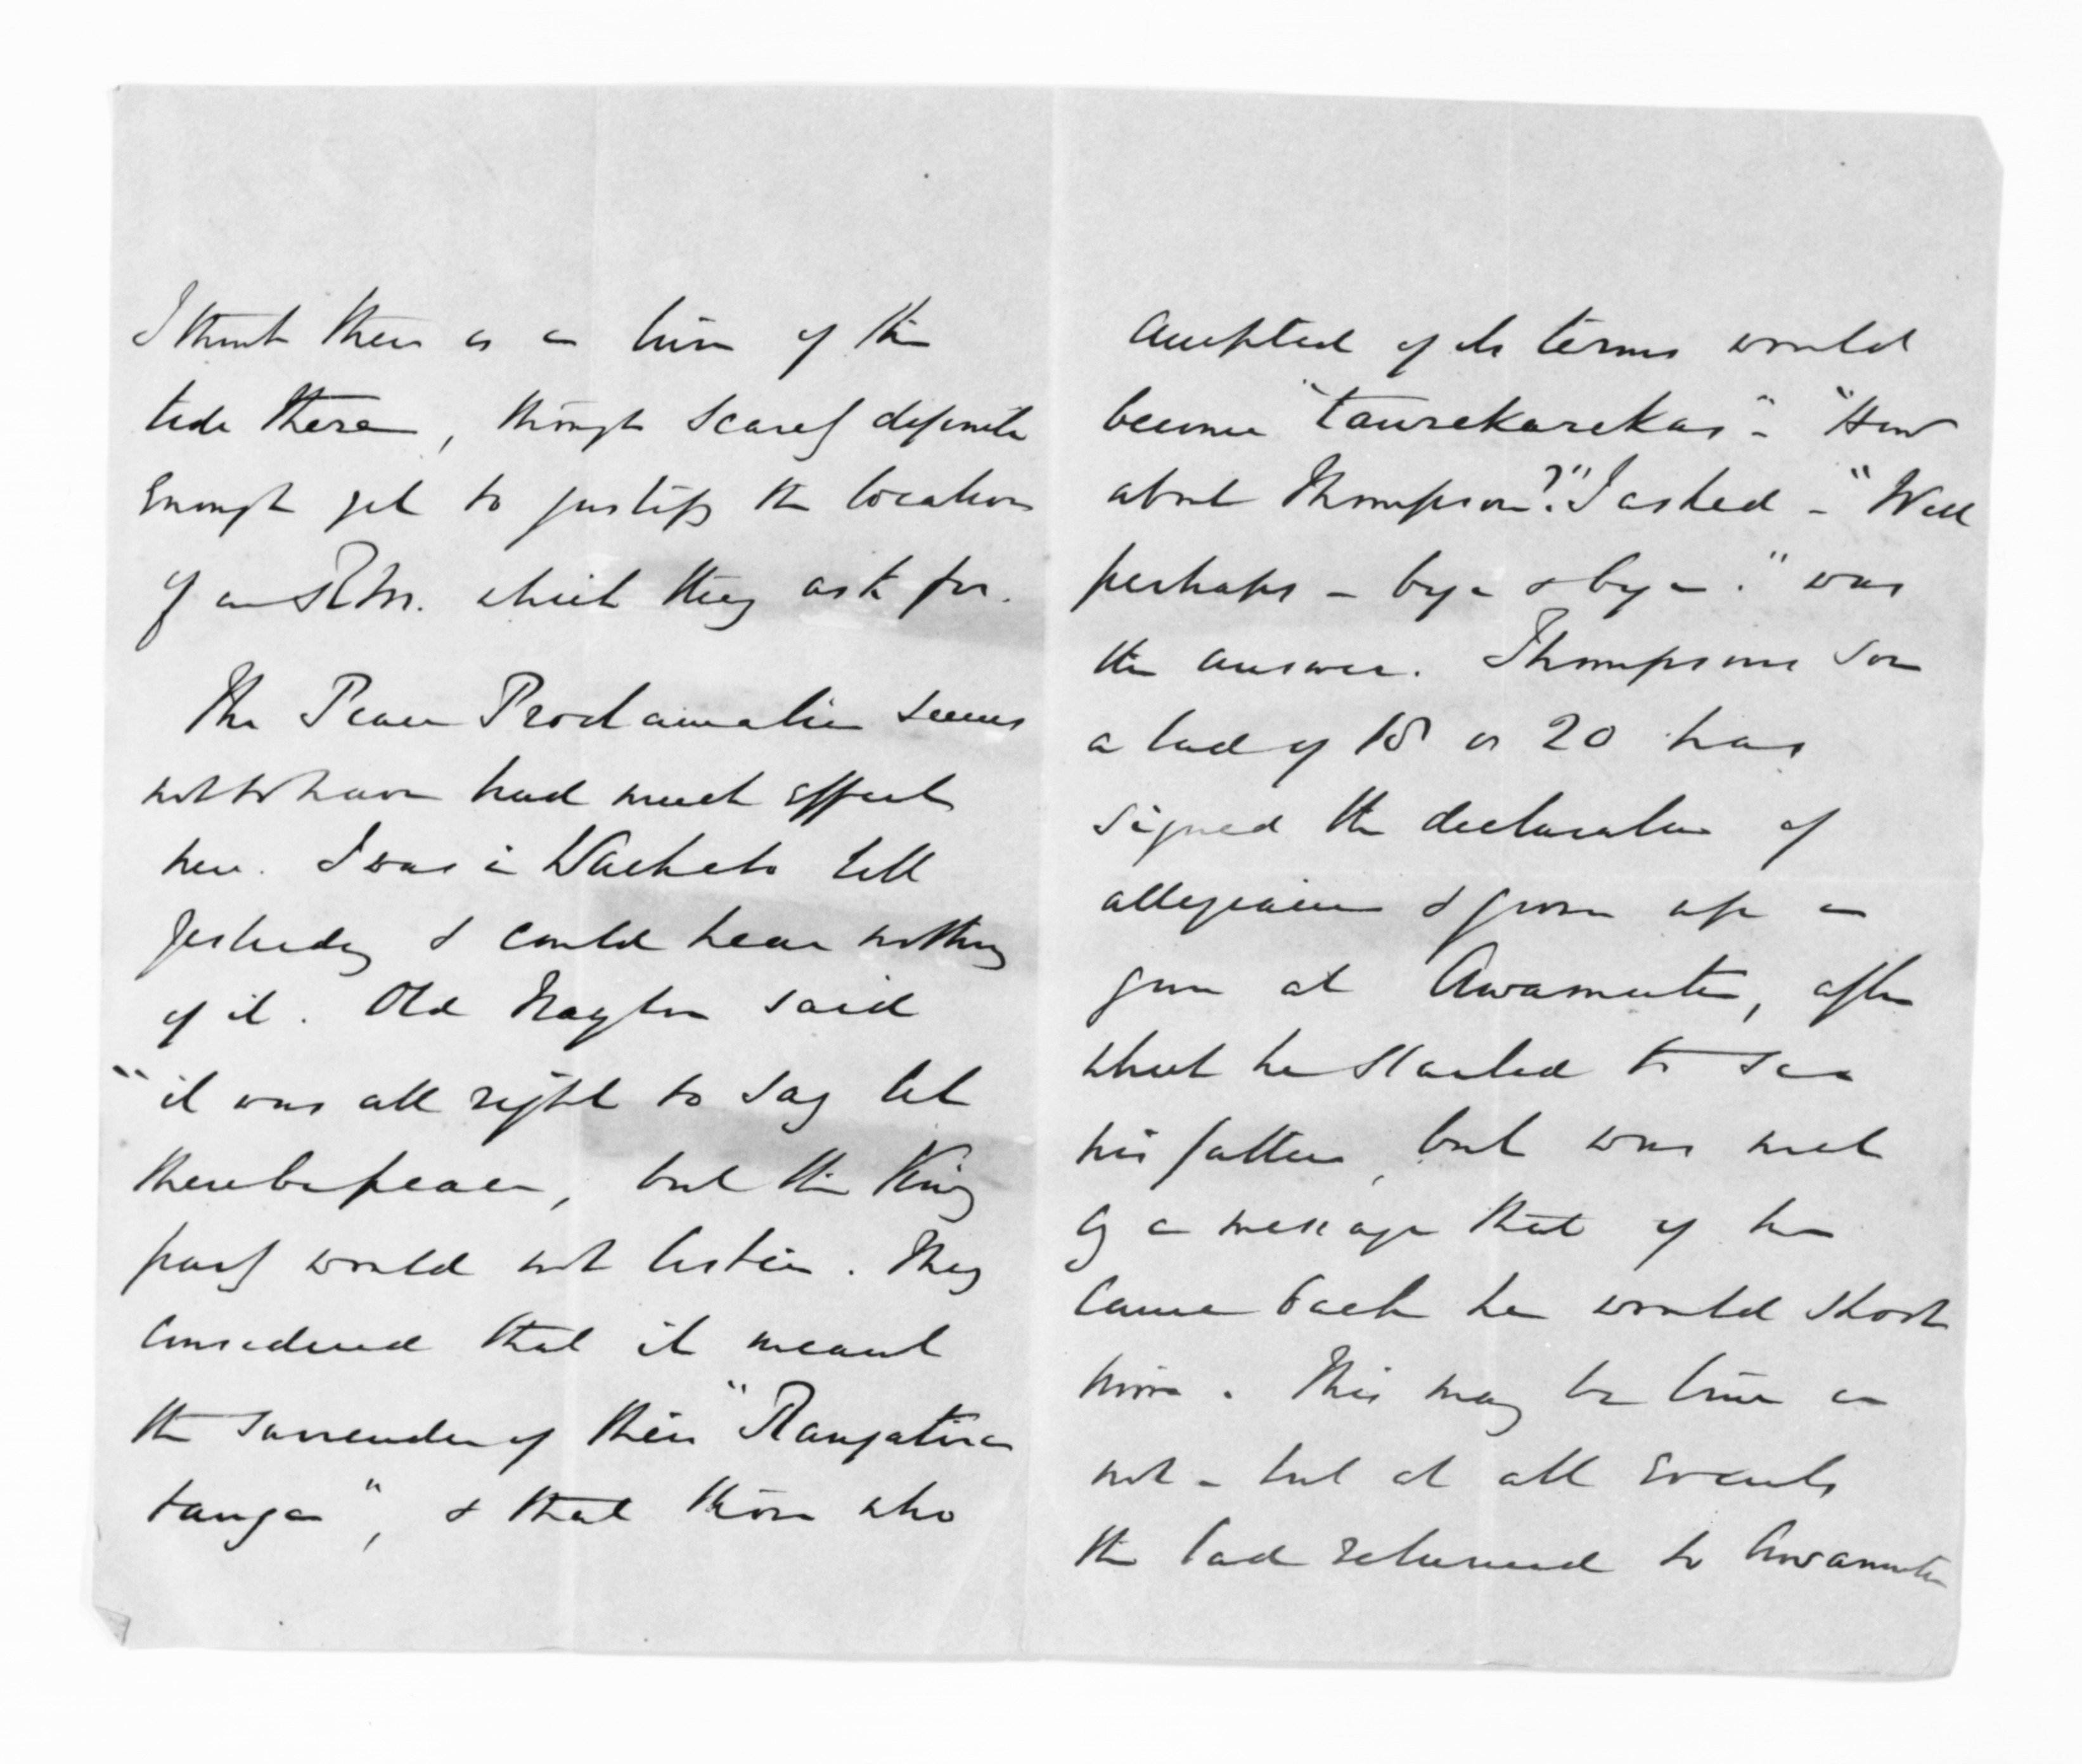 I think there is a turn of the
tide there, though scarcely definite
enough yet to justify the location
of an R.M. which they ask for.
The Peace Proclamation seems
not to have had much effect
here. I was in Waikato till
yesterday & could hear nothing
of it. Old Naylor said
"it was all right to say let
there be peace, but the King
party would not listen. They
considered that it meant
the surrender of their "Rangatira
tanga", & that those who
accepted of its terms would
become "taurekarekas" - "How
about Thompson?" I asked - "Well
perhaps - bye & bye." was
the answer. Thompsons son
a lad of 18 or 20 has
signed the declaration of
allegiance & given up a
gun at Awamutu, after
which he started to see
his father, but was met
by a message that if he
came back he would shoot
him. This may be true or
not - but at all events
the lad returned to Awamutu